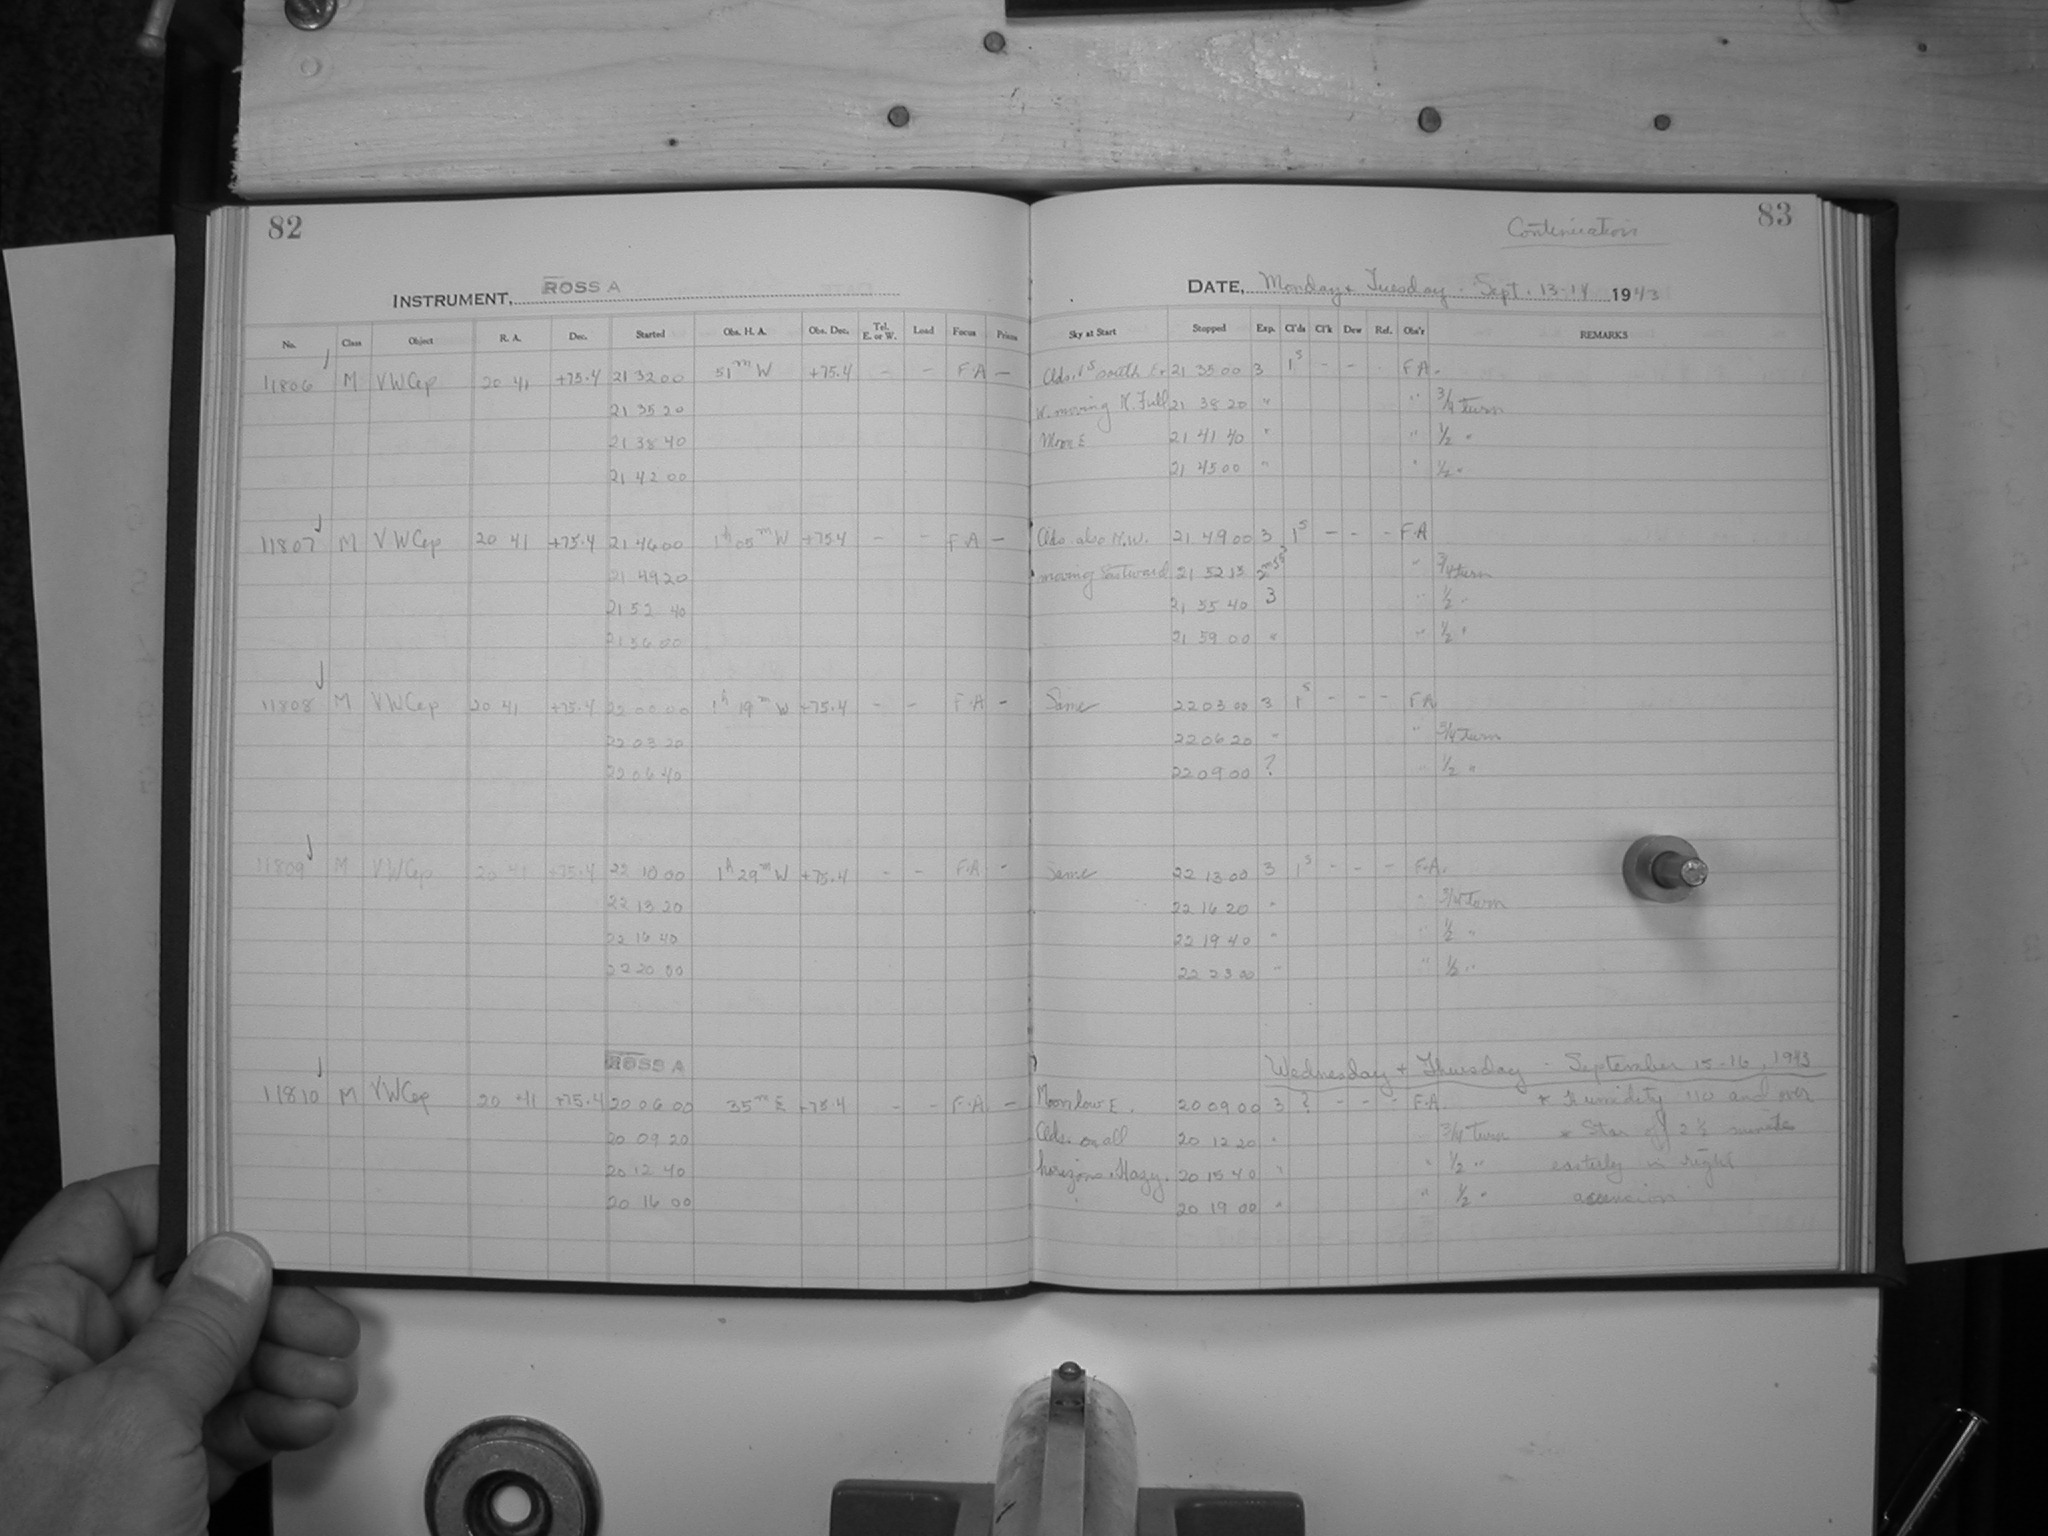 82
INSTRUMENT, ROSS A
No. Class Object R. A. Dec. Started Obs. H. A. Obs. Dec. Tel. E. or W. Load Focus Prism
11806 M VWCep 20 41 +75.4 21 32 00 51m W +75.4 - - F.A -
21 35 20
21 38 40
21 42 00
11807 M VWCep 20 41 +75.4 21 46 00 1h 05m W +75.4 - - F.A -
21 49 20
21 52 40
21 56 00
11808 M VWCep 20 41 +75.4 22 00 00 1h 19m W +75.4 - - F.A -
22 03 20
22 06 40
11809 M VWCep 20 41 +75.4 22 10 00 1h 29m W +75.4 - - F.A. -
22 13 20
22 16 40
22 20 00
ROSS A
11810 M VWCep 20 41 +75.4 20 06 00 35m E +75.4 - - F.A. -
20 09 20
20 12 40
20 16 00
83
Continuation
DATE, Monday + Tuesday - Sept. 13-14 1943
Sky at Start Stopped Exp. Cl'ds Cl'k Dew Ref. Obs'r REMARKS
Clds. 1s south E + 21 35 00 3 1s - - - F.A.
W. moving N. Full 21 38 20 " " 3/4 turn
Moon E 21 41 40 " " 1/2 "
21 45 00 " " 1/2 "
Clds also N.W. 21 49 00 3 1s - - - F.A
moving Eastward 21 52 13 " 3/4 turn
21 55 40 3 " 1/2 "
21 59 00 " " 1/2 "
Same 22 03 00 3 1s - - - F.A
22 06 20 " " 3/4 turn
22 09 00 ? " 1/2 "
Same 22 13 00 3 1s - - - F.A.
22 16 20 " " 3/4 turn
22 19 40 " " 1/2 "
22 23 00 " " 1/2 "
Wednesday + Thursday - September 15-16, 1943
Moon low E. 20 09 00 3 ? - - - F.A. * Humidity 110 and over
Clds. on all 20 12 20 " 3/4 turn * Star off 2 1/2 minute
horizons. Hazy. 20 15 40 " " 1/2 " easterly in right
20 19 00 " " 1/2 " ascension